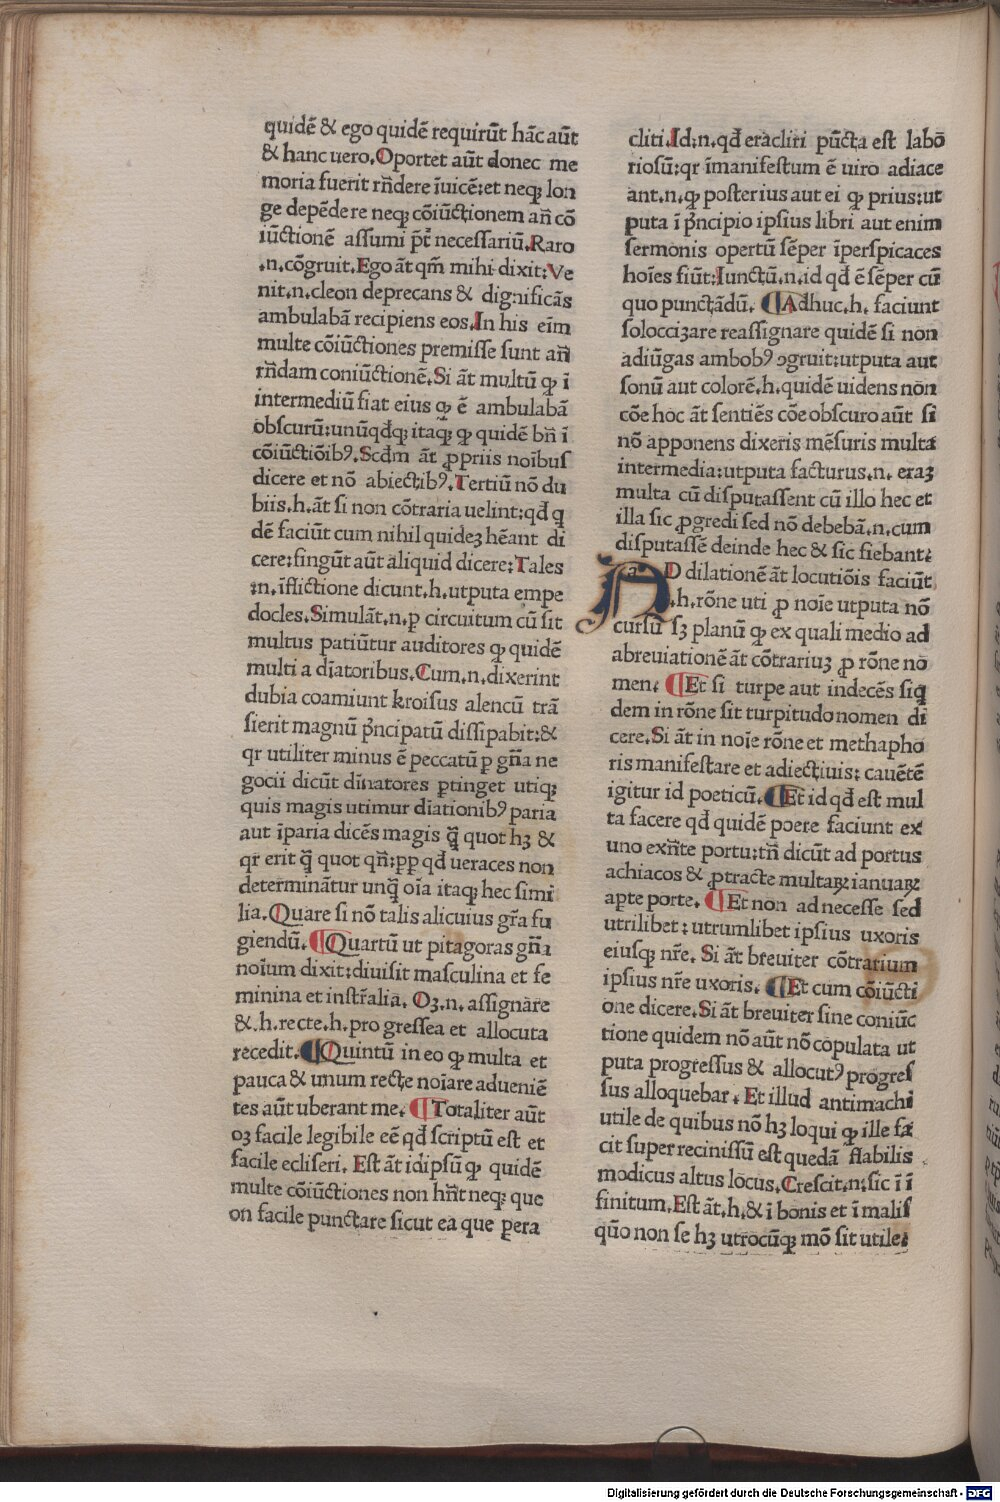 quidē & ego quidē requirūt hāc aūt
& hanc uero. Oportet aūt donec me
moria fuerit rñdere īuicē: et neqꝫ lon
ge depēdere neqꝫ cōiūctionem añ cō
iūctionē assumi p̄t necessariū. Raro
.n. cōgruit. Ego āt qm̄ mihi dixit: Ve
nit .n. cleon deprecans & dignificās
ambulabā recipiens eos. In his eīm
multe cōiūctiones premisse sunt añ
rñdam coniūctionē. Si āt multū ꝙ ī
intermediū fiat eius ꝙ ē ambulabā
obscurū: unūqđqꝫ itaqꝫ ꝙ quidē bñ ī
cōiūctiōibꝰ. Scđm āt ꝓpriis noībus
dicere et nō abiectibꝰ. Tertiū nō du
biis .h. āt si non cōtraria uelint: qđ q̄
dē faciūt cum nihil quideꝫ hēant di
cere: fingūt aūt aliquid dicere: Tales
.n. īflictione dicunt .h. utputa empe
docles. Simulāt .n. ꝑ circuitum cū sit
multus patiūtur auditores ꝙ quidē
multi a dīatoribus. Cum .n. dixerint
dubia coamiunt kroisus alencū trā
sierit magnū p̄ncipatū dissipabit: &
qr utiliter minus ē peccatū ꝑ gñā ne
gocii dicūt dīnatores ꝑtinget utiqꝫ
quis magis utimur dīationibꝰ paria
aut īparia dicēs magis q̄ quot hꝫ &
qr erit q̄ quot qñ: ꝑꝑ qđ ueraces non
determinātur unq̄ oīa itaqꝫ hec simi
lia. Quare si nō talis alicuius gr̄a fu
giendū. ¶ Quartū ut pitagoras gñā
noīum dixit: diuisit masculina et fe
minina et instr̄alia. Oꝫ .n. assignare
& .h. recte .h. pro gressea et allocuta
recedit. ¶ Quintū in eo ꝙ multa et
pauca & unum recte noīare adueniē
tes aūt uberant me. ¶ Totaliter aūt
oꝫ facile legibile eē qđ scriptū est et
facile ecliseri. Est āt idipsū ꝙ quidē
multe cōiūctiones non hñt neqꝫ que
on facile punctare sicut ea que ꝑera
cliti. Id .n. qđ eracliti pūcta est labō
riosū: qr īmanifestum ē uiro adiace
ant .n. ꝙ posterius aut ei ꝙ prius: ut
puta ī p̄ncipio ipsius libri aut enim
sermonis opertū sēper īperspicaces
hoīes fiūt: Iunctū .n. id qđ ē sēper cū
quo punctādū. ¶ Adhuc .h. faciunt
soloccizare reassignare quidē si non
adiūgas ambobꝰ ꝯgruit: utputa aut
sonū aut colorē .h. quidē uidens non
cōe hoc āt sentiēs cōe obscuro aūt si
nō apponens dixeris mēsuris multa
intermedia: utputa facturus .n. eraꝫ
multa cū disputassent cū illo hec et
illa sic ꝓgredi sed nō debebā .n. cum
disputassē deinde hec & sic fiebant:
AD dilationē āt locutiōis faciūt
.h. rōne uti ꝓ noīe utputa nō
cursū sꝫ planū ꝙ ex quali medio ad
abreuiationē āt cōtrariuꝫ ꝓ rōne no
men. ¶ Et si turpe aut indecēs siq̄
dem in rōne sit turpitudo nomen di
cere. Si āt in noīe rōne et methapho
ris manifestare et adiectiuis: cauētē
igitur id poeticū. ¶ Et id qđ est mul
ta facere qđ quidē poere faciunt ex
uno exn̄te portu: tñ dicūt ad portus
achiacos & ꝓtracte multaꝝ ianuaꝝ
aꝑte porte. ¶ Et non ad necesse sed
utrilibet: utrumlibet ipsius uxoris
eiusqꝫ nr̄e. Si āt breuiter cōtrarium
ipsius nr̄e uxoris. ¶ Et cum cōiūcti
one dicere. Si āt breuiter sine coniūc
tione quidem nō aūt nō copulata ut
puta progressus & allocutꝰ progres
sus alloquebar. Et illud antimachi
utile de quibus nō hꝫ loqui ꝙ ille fa
cit super recinissū est quedā flabilis
modicus altus locus. Crescit .n. sic ī ī
finitum. Est āt .h. & ī bonis et ī malis
quō non se hꝫ utrocūqꝫ mō sit utile:
Digitalisierung gefördert durch die Deutsche Forschungsgemeinschaft - DFG